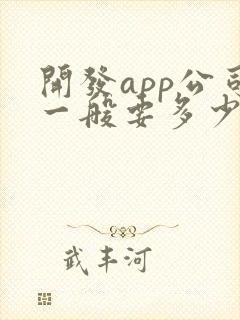 開發app公司
一般要多少
武丰河